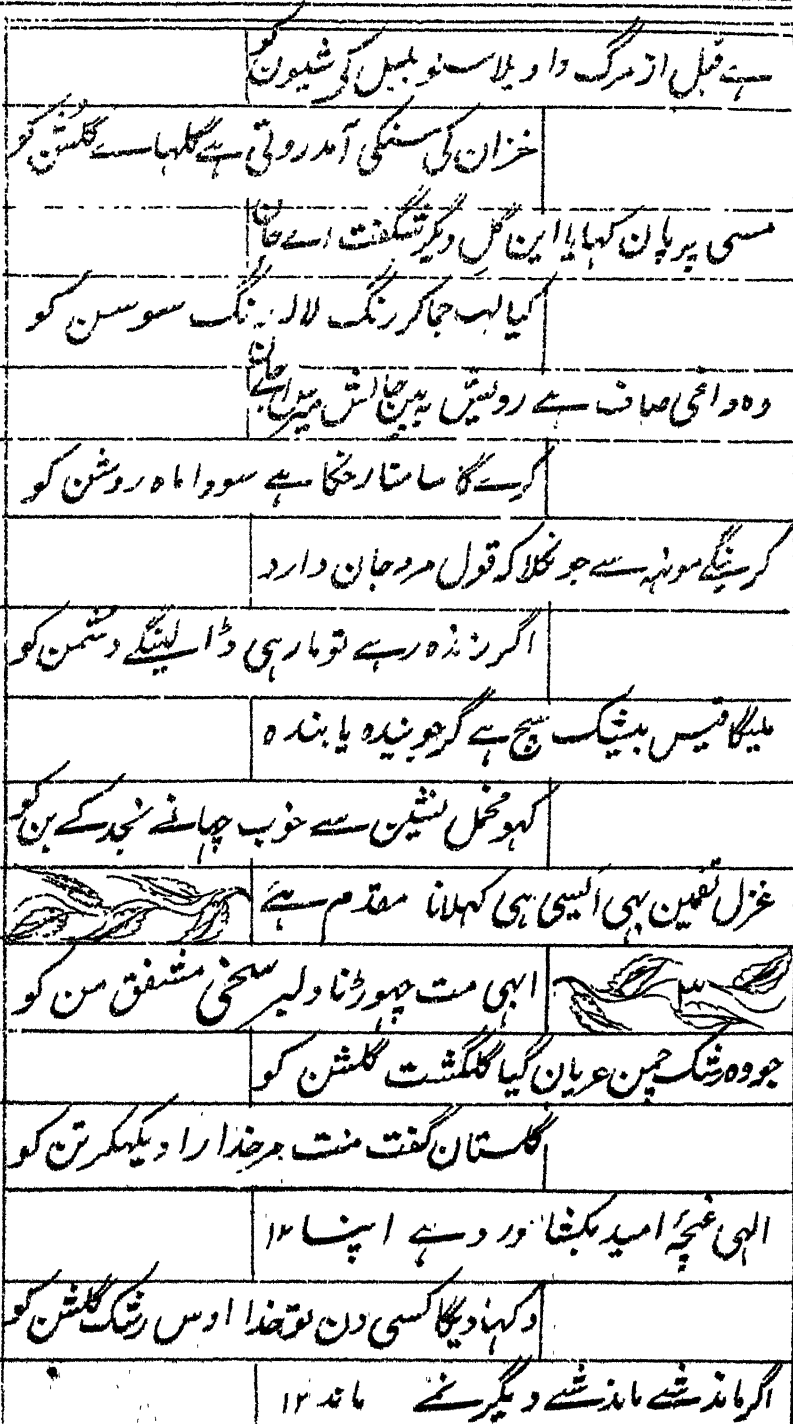 ہے قبل از مرگ واویلا سنو بلبل کی شیون کو
خزان کی سنکی آمد روتی ہے گلہا سے گلشن کو
مسی پر پان کہایا این گل دیگر شگفت اے جان
کیا لب جماکر رنگ لالہ نگ سوسن کو
وہ داغی صاف ہے روئیش ببین حالش مپرس اجان
کرے گا سامنا رخکا ہے سودا ماہ روشن کو
کرینگے مونہہ سے جو نکلا کہ قول مرد جان دارد
اگر زندہ رہے تو مار ہی ڈالینگے دشمن کو
ملیگا قیس بیشک سچ ہے گر جویندہ یابندہ
کہو محمل نشین سے خوب چہانے نجد کے بن کو
غزل تضمین بہی ایسی ہی کہلانا مقدم ہے
ابہی مت چہوڑنا دلبر سخی مشفق من کو
جو وہ رشک چمن عریان گیا گلگشت گلشن کو
گلستان گفت منت مر خدا را دیکہکر تن کو
الہی غنچۂ امید بکشا ورد ہے اپنا ۱۲
دکہا دیگا کسی دن تو خدا اوس رشک گلشن کو
اگر ماند شبے ماند شبے دیگر نمے ماند ۱۲